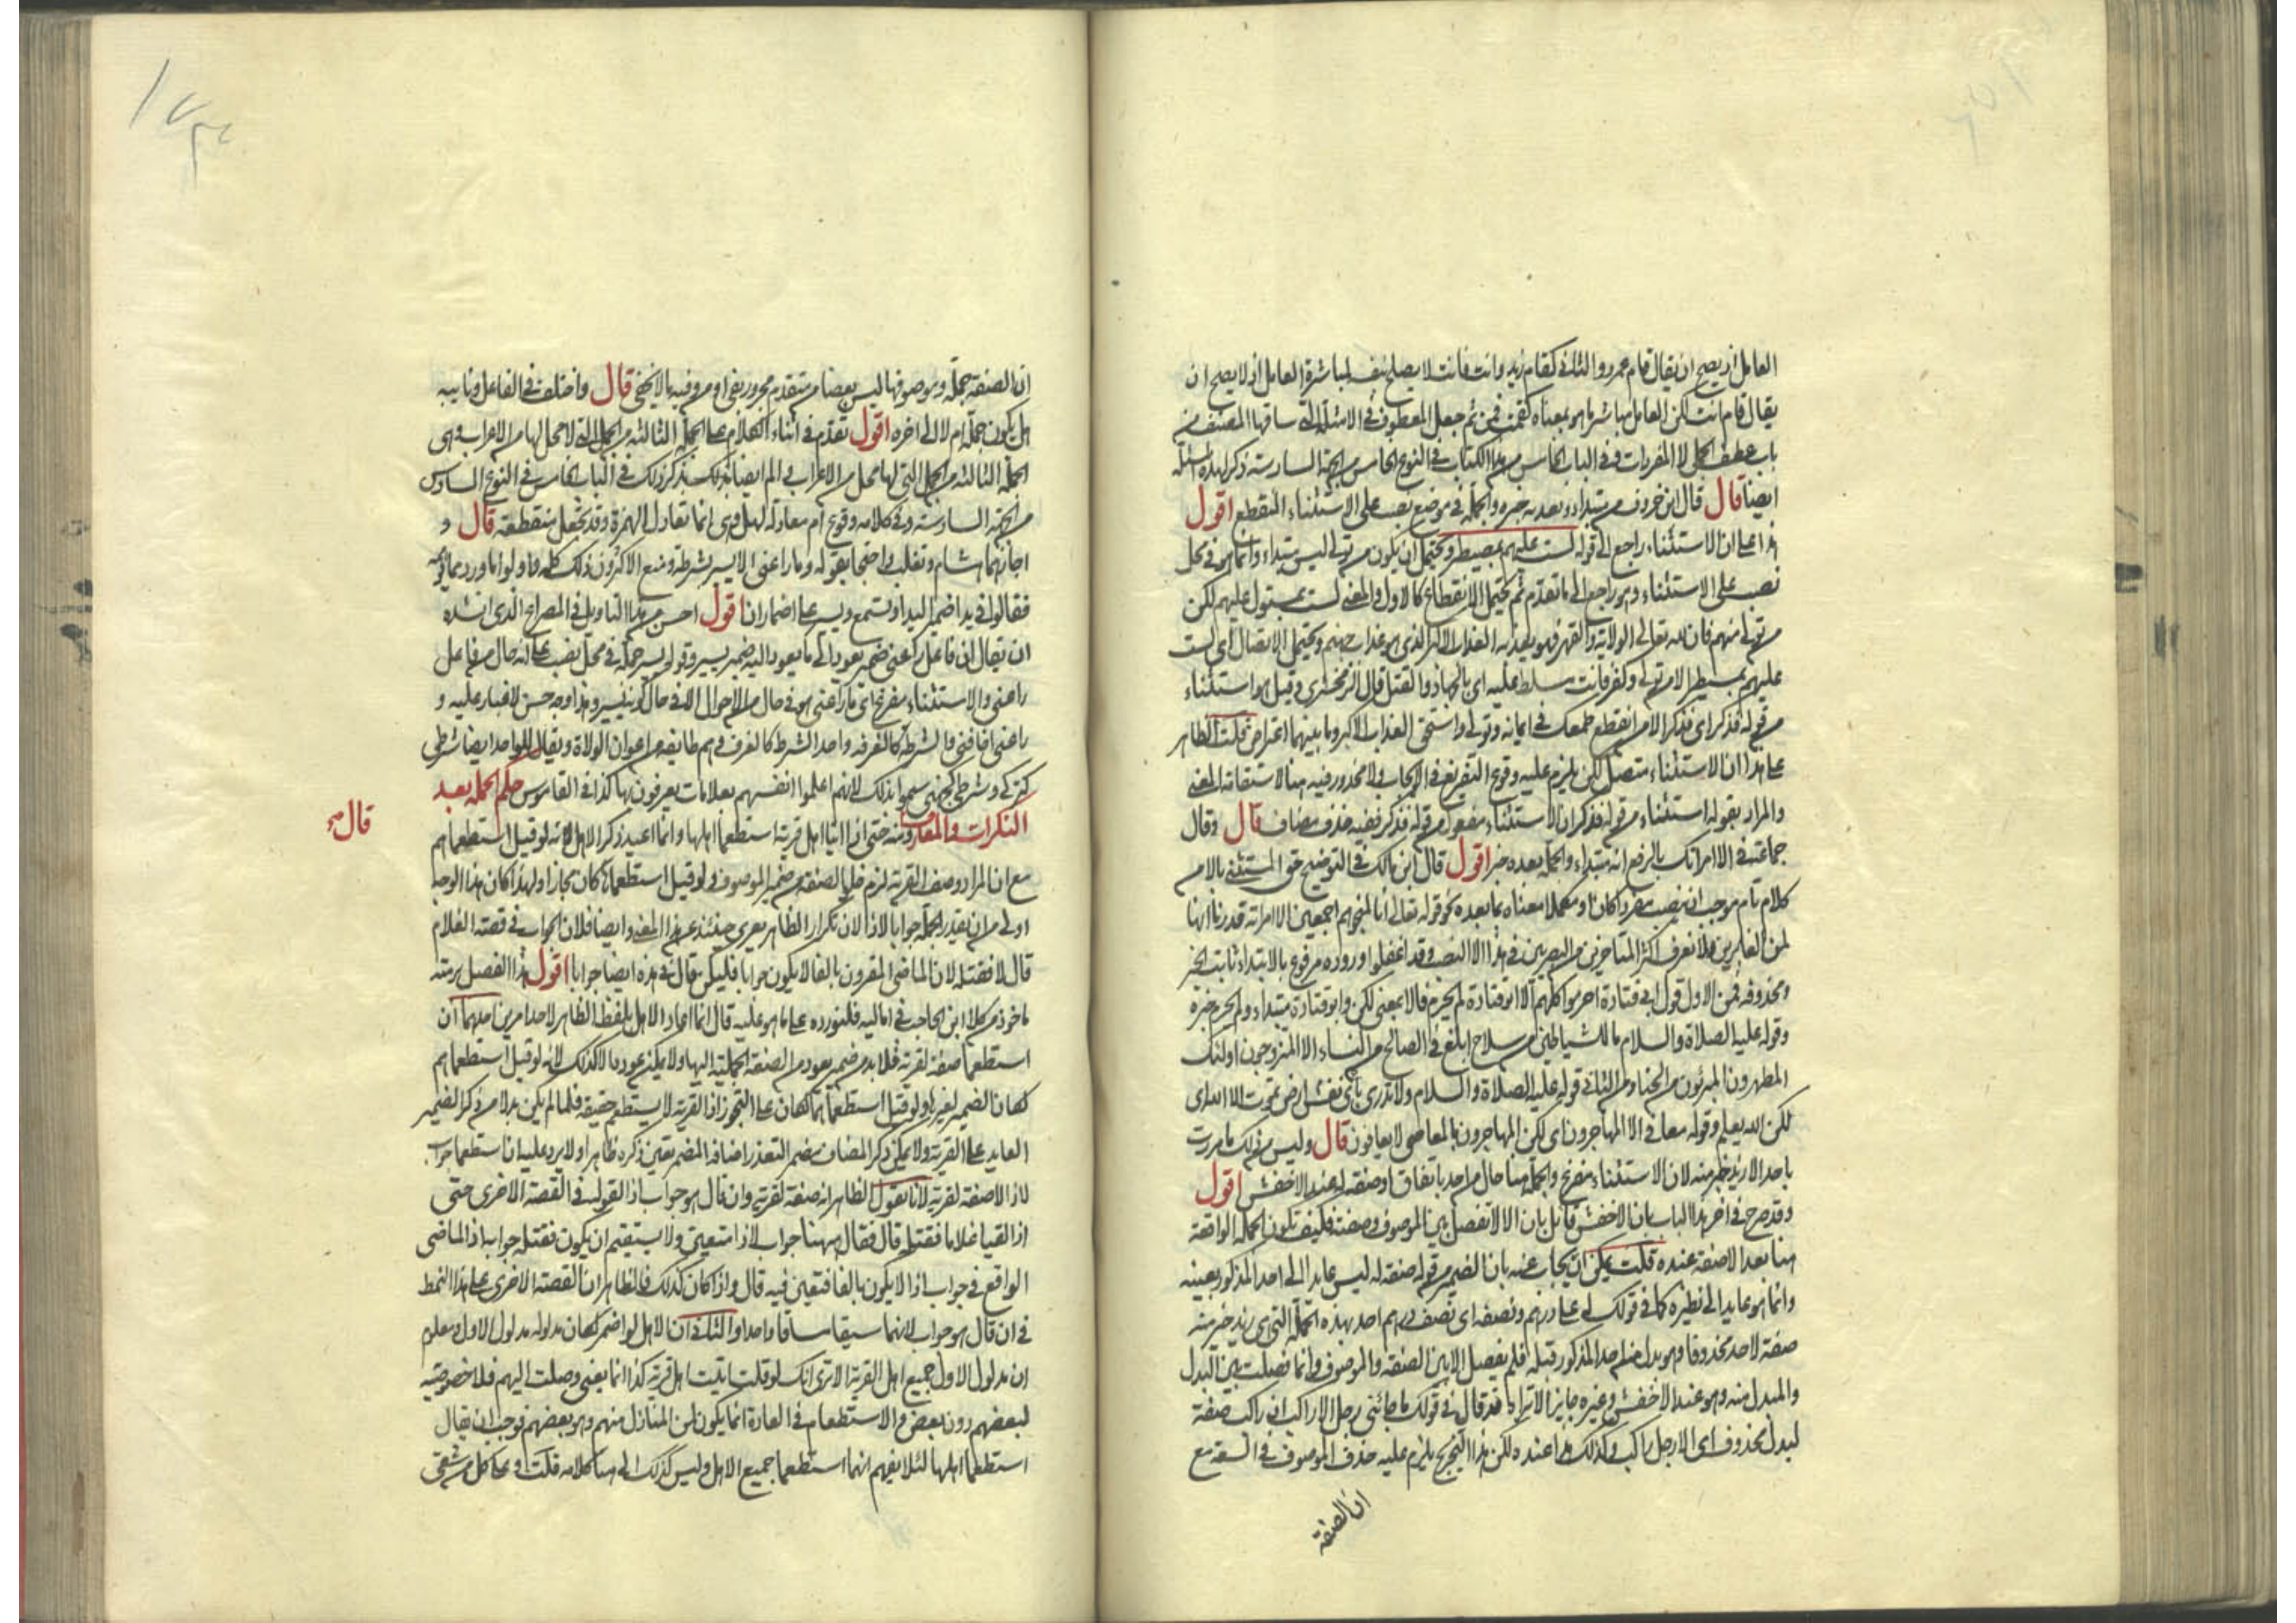 العامل اذ يصح ان يقال قام عمرو والثاني كقام زيد وانت فانت لا يصلح بنفسه لمباشرة العامل اذ لا يصح ان
يقال قام انت لكن العامل مباشر ما هو بمعناه كقمت فمن ثم جعل المعطوف في الامثلة التي ساقها المصنف من
باب عطف الجمل لا المفردات وفي الباب الخامس من هذا الكتاب في النوع الخامس من الجهة السادسة ذكر لهذه المسئلة
ايضا قال قال ابن خروف من مبتداء ويعذبه خبره والجملة في موضع نصب على الاستثناء المنقطع اقول
هذا على ان الاستثناء راجع الى قوله لست عليهم بمصيطر ويحتمل ان يكون من تولى ليس مبتداء وانما هو في محل
نصب على الاستثناء وهو راجع الى ما تقدم ثم يحتمل الانقطاع كالاول والمعنى لست بمستول عليهم لكن
من تولى منهم فان لله تعالى الولاية والقهر فهو يعذبه العذاب الاكبر الذي هو عذاب جهنم ويحتمل الاتصال اى لست
عليهم بمسيطر الا من تولى وكفر فانت سلط عليه اى بالجهاد والقتل قال الزمخشري وقيل هو استثناء
من قوله فذكر اى فذكر الا من انقطع طمعك في ايمانه وتولى واستحق العذاب الاكبر وما بينهما اعتراض قلت الظاهر
على هذا ان الاستثناء متصل لكن يلزم عليه وقوع التفريغ في الايجاب ولا محذور فيه هنا لاستقامة المعنى
والمراد بقوله استثناء من قوله فذكر ان الاستثناء مفعول من قوله فذكر ففيه حذف مضاف قال وقال
جماعة في الا امراتك بالرفع انه مبتداء والجملة بعده خبر اقول قال ابن مالك في التوضيح حق المستثنى بالا من
كلام تام موجب ان ينصب مفردا كان او مكملا معناه بما بعده كقوله تعالى انا لمنجوهم اجمعين الا امراته قدرنا انها
لمن الغابرين ولا نعرف اكثر المتاخرين من البصريين في هذا الا النصب وقد اغفلوا وروده مرفوع بالابتداء ثابت الخبر
ومحذوفه فمن الاول قول ابي قتادة احرموا كلهم الا ابو قتادة لم يحرم فالا بمعنى لكن وابو قتادة مبتداء ولم يحرم خبره
وقوله عليه الصلاة والسلام ما للشياطين من سلاح ابلغ في الصالحين من النساء الا المتزوجون اولئك
المطهرون المبرئون من الخنا ومن الثاني قوله عليه الصلاة والسلام ولا تدري نفس باى ارض تموت الا الله اى
لكن الله يعلم وقوله معافى الا المجاهرون اى لكن المجاهرون بالمعاصي لا يعافون قال وليس من ذلك ما مررت
باحد الا زيد خير منه لان الاستثناء مفرغ والجملة هنا حال من احد باتفاق او صفة له عند الاخفش اقول
وقد صرح في اخر هذا الباب بان الاخفش قائل بان الا لا تفصل بين الموصوف وصفته فكيف تكون الجملة الواقعة
هنا بعد الا صفة عنده قلت يمكن ان يجاب عنه بان الضمير من قوله صفة له ليس عايدا الى احد المذكور بعينه
وانما هو عايد الى نظيره كما في قولك له علي درهم ونصفه اى نصف درهم اخر بهذه الجملة التي هي زيد خير منه
صفة لاحد محذوفا وهو بدل من احد المذكور قبله فلم يفصل الا بين الصفة والموصوف وانما فصلت بين البدل
والمبدل منه وهو عند الاخفش وغيره جايز الا تراه قد قال في قولك ما جائني رجل الا راكب ان راكب صفة
لبدل محذوف اى الا رجل راكب وكذلك هذا عنده لكن هذا التخريج يلزم عليه حذف الموصوف في السعة مع
ان الصفة
ان الصفة جملة وموصوفها ليس بعضا من متقدم مجرور بفي او من وفيه ما لا يخفى قال واختلف في الفاعل ونايبه
هل يكون جملة ام لا الى اخره اقول تقدم في اثناء الكلام على الجملة الثالثة من الجمل التي لا محل لها من الاعراب وفي
الجملة الثالثة من الجمل التي لها محل من الاعراب في المام ايضا بذلك يذكر ذلك في الباب الخامس في النوع السادس
من الجهة السادسة وفي كلامه وقوع ام معادلة لهل وهي انما تعادل الهمزة وقد تجعل منقطعة قال و
اجازهما هشام وثعلب واحتجا بقوله وما راعني الا يسير بشرطة ومنع الاكثرون ذلك كله واولوا ما ورد مما يوهمه
فقالوا في بدا ضمير البداو وتسمع ويسير على اضمار ان اقول احسن من هذا التاويل في المصراع الذي انشده
ان يقال ان فاعل راعني ضمير يعود الى ما يعود اليه ضمير يسير وقوله يسير جملة في محل نصب على انه حال من فاعل
راعني والاستثناء مفرغ اى ما راعني هو في حال من الاحوال الا في حال كونه يسير وهذا وجه حسن لا غبار عليه و
راعني اخافني والشرطة كالغرفة واحد الشرط كالغرف وهم طايفة من اعوان الولاة ويقال للواحد ايضا شرطي
كتركي وشرطي كجهني سموا بذلك لانهم اعلموا انفسهم بعلامات يعرفون بها كذا في القاموس حكم الجملة بعد
النكرات والمعارف ومنه حتى اذا اتيا اهل قرية استطعما اهلها وانما اعيد ذكر الاهل لانه لو قيل استطعماهم
قال صح
مع ان المراد وصف القرية لزم خلو الصفة من ضمير الموصوف ولو قيل استطعماها كان مجازا ولهذا كان هذا الوجه
اولى من ان يقدر الجملة جوابا لاذا لان تكرار الظاهر يعرى حينئذ عن هذا المعنى وايضا فلان الجواب في قصة الغلام
قال لا فقتله لان الماضي المقرون بالفا لا يكون جوابا فليكن قال في هذه ايضا جوابا اقول هذا الفصل برمته
ماخوذ من كلام ابن الحاجب في اماليه فلنورده على ما هو عليه قال انما اعاد الاهل بلفظ الظاهر لاحد امرين احدهما ان
استطعما صفة لقرية فلا بد من ضمير يعود من الصفة الجملية اليها ولا يمكن عوده الا كذلك لانه لو قيل استطعماهم
لكان الضمير لغيرها ولو قيل استطعماها لكان على التجوز اذ القرية لا يستطعم حقيقة فلما لم يكن بد من ذكر الضمير
العايد على القرية ولا يمكن ذكر المضاف مضمرا لتعذر اضافة المضمر تعين ذكره ظاهرا ولا يرد عليه ان استطعما جواب
لاذا لا صفة لقرية لانا نقول الظاهر انه صفة لقرية وان قال هو جواب اذا لقوله في القصة الاخرى حتى
اذا لقيا غلاما فقتله قال فقال ههنا جواب لاذا متعين ولا يستقيم ان يكون فقتله جوابه اذ الماضي
الواقع في جواب اذا لا يكون بالفا فتعين فيه قال واذا كان كذلك فالظاهر ان القصة الاخرى على هذا النمط
في ان قال هو جواب لانهما سيقا مساقا واحدا والثاني ان الاهل لو اضمر لكان مدلوله مدلول الاول ومعلوم
ان مدلول الاول جميع اهل القرية الا ترى انك لو قلت اتيت اهل قرية كذا انما يعني وصلت اليهم فلا خصوصية
لبعضهم دون بعض والاستطعام في العادة انما يكون لمن المنازل منهم وهو بعضهم فوجب ان يقال
استطعما اهلها لئلا يفهم انهما استطعما جميع الاهل وليس كذلك الى هنا كلامه قلت او على كل من شقي